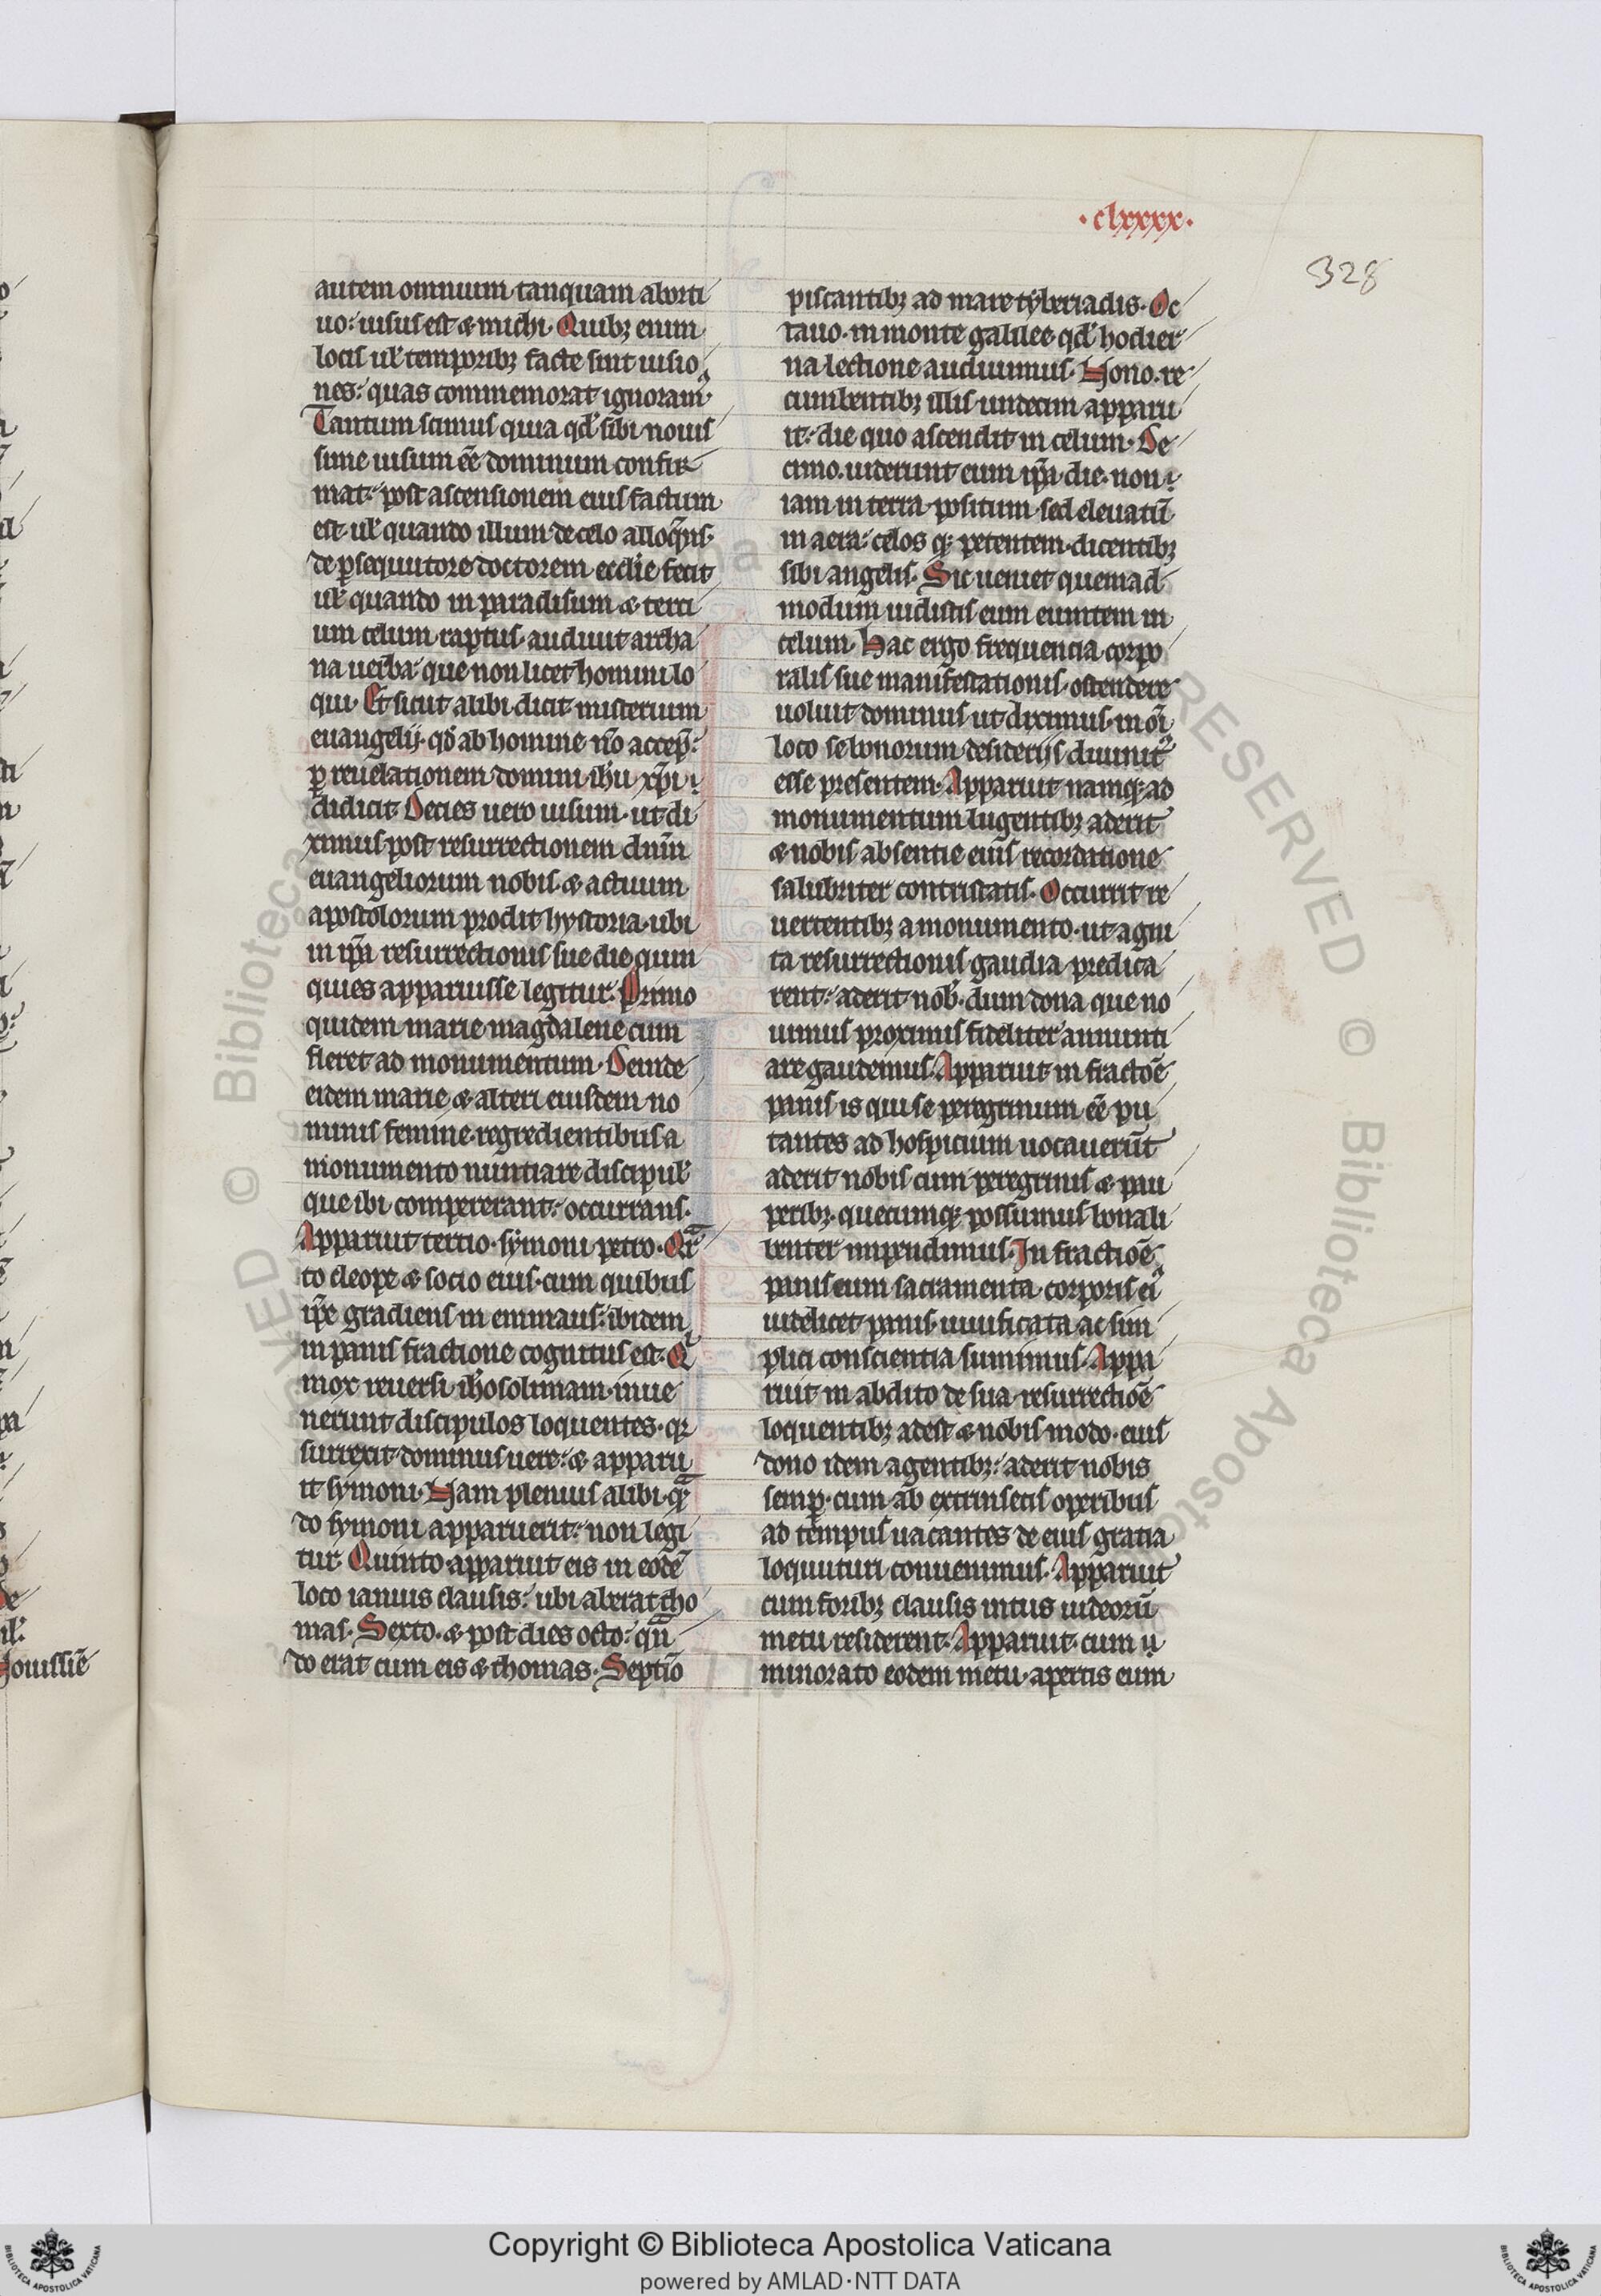 ·clxxxx·
328
autem omnium tanquam aborti
uo: uisus est & michi. Quibꝫ enim
locis ul̓ temporibꝫ facte sint uisio
nes: quas commemorat ignoram᷒.
Tantum scimus quia qd̓ sibi nouis
sime uisum ee̅ dominum confir
mat: post ascensionem eius factum
est. ul̓ quando illum de celo alloque̅s.
de ꝑsequutore doctorem eccl̓ie fecit
ul̓ quando in paradisum & terci
um celum raptus. audiuit archa
na uerba: que non licet homini lo
qui. Et sicut alibi dicit misterium
euangelij. qd̓ ab homine no̅ accep̅:
ꝑ reuelationem domini ih̅u xp̅i
didicit. Decies uero uisum. ut di
ximus post resurrectionem dn̅m
euangeliorum nobis. & actuum
apostolorum prodit hystoria. ubi
in ip̅a resurrectionis sue die quin
quies apparuisse legitur. Primo
quidem marie magdalene cum
fleret ad monumentum. Deinde
eidem marie & alteri eiusdem no
minis femine. regredientibus a
monumento nuntiare discipul̓
que ibi compererant: occurrans.
Apparuit tertio. symoni petro. Qr̅
to cleope & socio eius. cum quibus
ip̅e gradiens in emmaus: ibidem
in panis fractione cognitus est. Qi
mox reuersi ih̓osolimam. inue
nerunt discipulos loquentes. qꝛ
surrexit dominus uere: & apparu
it symoni. Nam plenius alibi. qn̅
do symoni apparuerit: non legi
tur. Quinto. apparuit eis in eode̅
loco ianuis clausis: ubi aberat tho
mas. Sexto. & post dies octo: qn̅
do erat cum eis & thomas. Septi̅o
piscantibꝫ ad mare tyberiadis. Oc
tauo. in monte galilee. qd̓ hodier
na lectione audiuimus. Nono. re
cumbentibꝫ illis undecim apparu
it: die quo ascendit in celum. De
cimo. uiderunt eum ip̅a die. non
iam in terra positum. sed eleuatu̅
in aera: celos qꝫ petentem. dicentibꝫ
sibi angelis. Sic ueniet quemad
modum uidistis eum euntem in
celum. Hac ergo frequencia corpo
ralis sue manifestationis. ostendere
uoluit dominus ut diximus. in oi̅
loco se bonorum desiderijs diuinit᷒
esse presentem. Apparuit namqꝫ ad
monumentum lugentibꝫ aderit
& nobis absentie eius recordatione
salubriter contristatis. Occurrit re
uertentibꝫ a monumento. ut agni
ta resurrectionis gaudia predica
rent: aderit nob̓. dum bona que no
uimus proximis fideliter annunti
are gaudemus. Apparuit in fractoe̅
panis is qui se peregrinum ee̅ pu
tantes ad hospicium uocaueru̅t
aderit nobis cum peregrinis & pau
peribꝫ. quecumqꝫ possumus bona li
benter inpendimus. In fractioe̅
panis cum sacramenta corporis ei᷒
uidelicet panis. uiuificata ac sim
plici conscientia sumimus. Appa
ruit in abdito de sua resurrectioe̅
loquentibꝫ adest & nobis modo. eius
dono idem agentibꝫ: aderit nobis
semꝑ. cum ab extrinsecis operibus
ad tempus uacantes de eius gratia
loquuturi conuenimus. Apparuit
cum foribꝫ clausis intus iudeoru̅
metu residerent. Apparuit. cum ii
minorato eodem metu. apertis eum
Copyright © Biblioteca Apostolica Vaticana
powered by AMLAD·NTT DATA